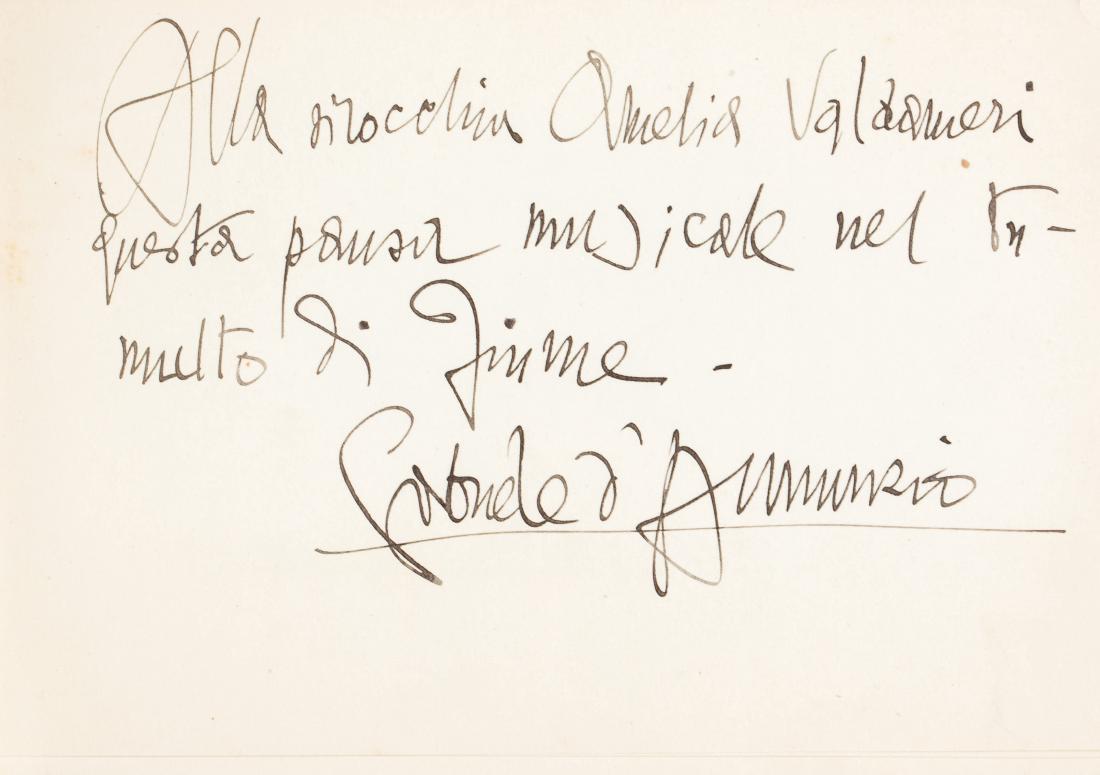 Alla sirocchia Amelia Valdameri
questa pausa musicale nel tu-
multo di Fiume -
Gabriele d'Annunzio